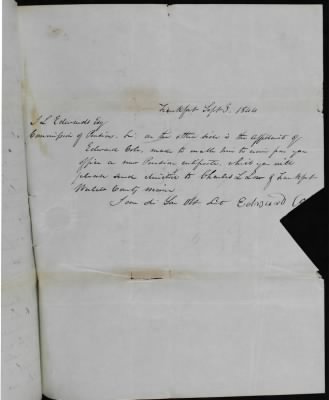 Frankfort Sept 3. 1844
J L Edwards Esq
Commissioner of Pensions. Sir on the other side is the affidavit of
Edward Coley made to enable him to from your
office a new Pension Certificate, which you will
please send directed to Charles L Low of Frankfort
Waldo County Maine
I am dr Sir Obt Svt Edward